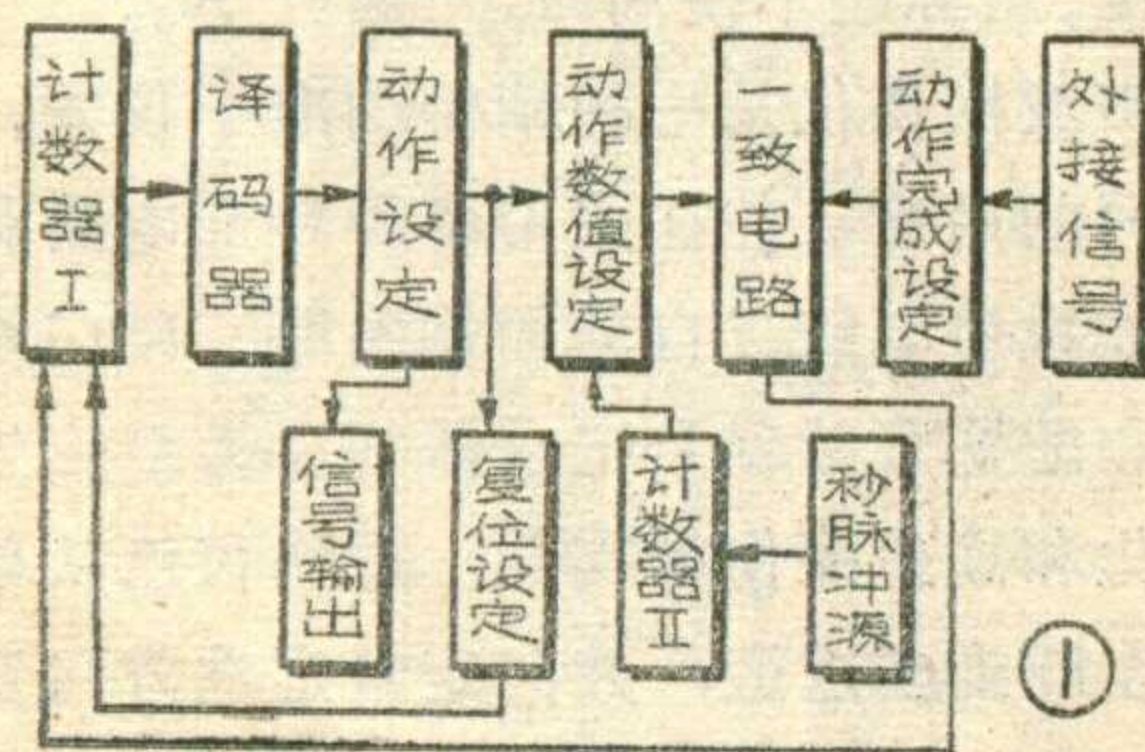 计数器I
译码器
动作设定
动作数值设定
一致电路
动作完成设定
外接信号
信号输出
复位设定
计数器II
秒脉冲源
①